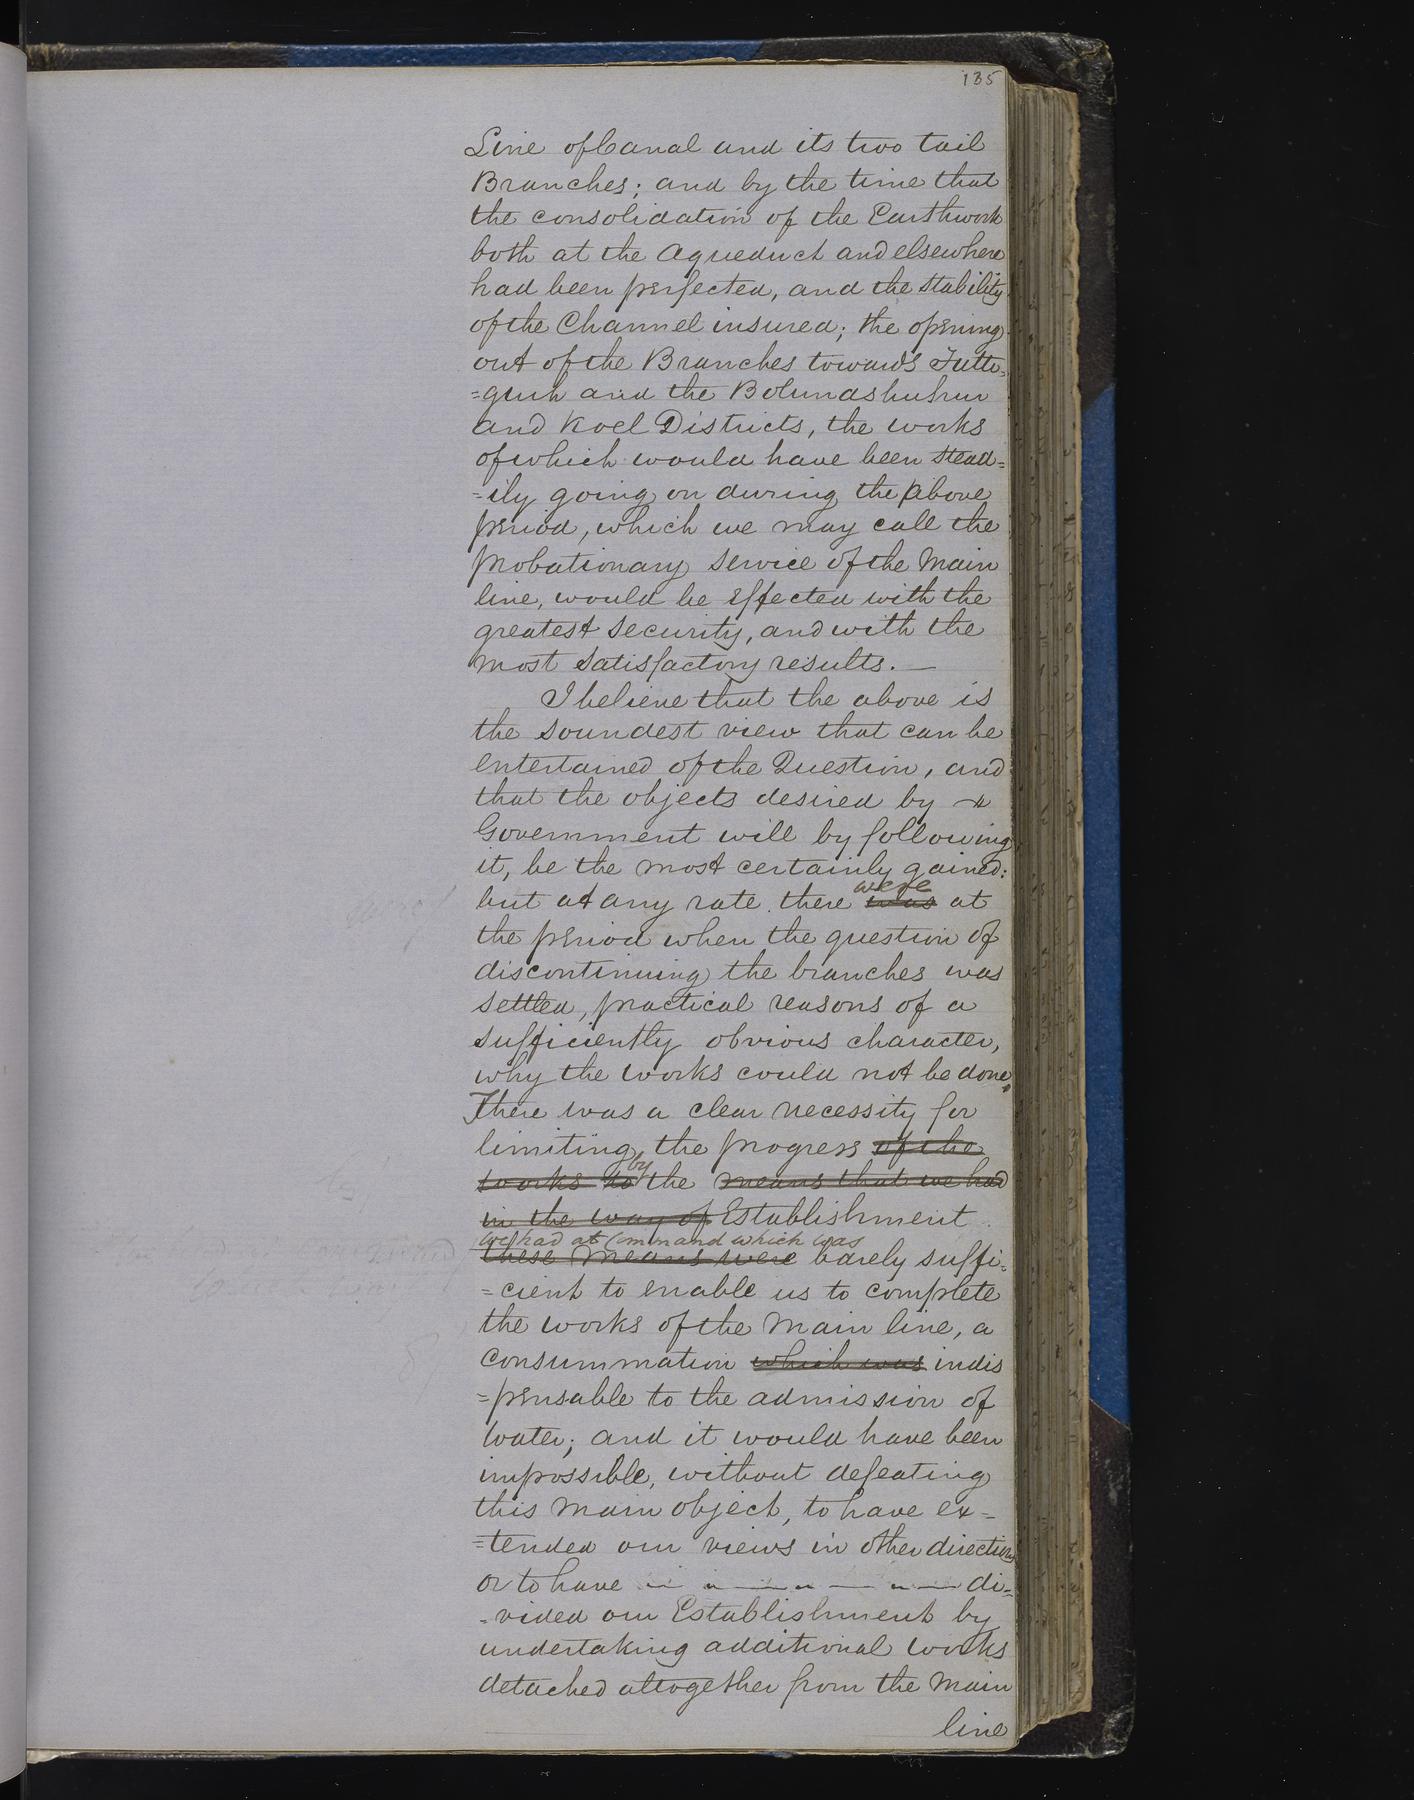 135
Line of Canal and its two tail
Branches; and by the time that
the consolidation of the Earthwork
both at the Aqueduct and elsewhere
had been perfected, and the stability
of the Channel insured; the opening
out of the Branches towards Futte-
=gurh and the Bolundshuhur
and Koel Districts, the works
of which would have been stead=
=ily going on during the above
period, which we may call the
probationary service of the Main
line, would be effected with the
greatest security, and with the
most satisfactory results. —
I believe that the above is
the soundest view that can be
entertained of the Question, and
that the objects desired by
Government will by following
it, be the most certainly gained:
were
but at any rate there was at
the period when the question of
discontinuing the branches was
settled, practical reasons of a
sufficiently obvious character,
why the works could not be done.
There was a clear necessity for
limiting the progress of the
by
works to the means that we had
in the way of Establishment
we had at Command which was
these means were barely suffi=
=cient to enable us to complete
the works of the Main line, a
consummation which was indis
=pensable to the admission of
Water; and it would have been
impossible, without defeating
this main object, to have ex=
=tended our views in other directions
or to have di=
=vided our Establishment by
undertaking additional works
detached altogether from the Main
line